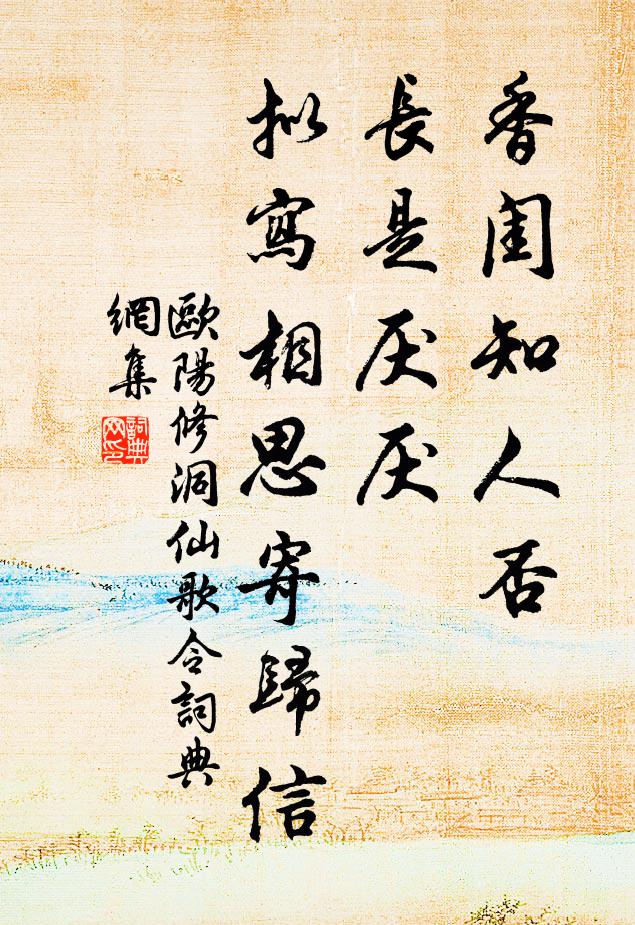 香閨知人否
長是厌厌
拟寫相思寄歸信
歐陽修洞仙歌令詞典
網集
詞典
网印